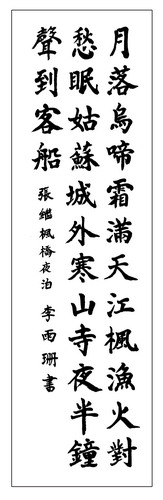 月落烏啼霜滿天江楓漁火對
愁眠姑蘇城外寒山寺夜半鐘
聲到客船
張繼楓橋夜泊 李雨珊書